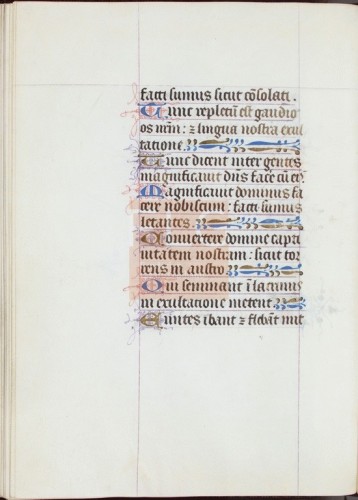 facti sumus sicut cōsolati.
Tunc repletū est gaudio
os nrm̄: ⁊ lingua nostra exul
tatione.
Tunc dicent inter gentes
magnificauit dn̄s face cū eˀ.
Magnificauit dominus fa
cere nobiscum: facti sumus
letantes.
Conuertere domine capti
uitatem nostram: sicut tor
rens in austro.
Qui seminant ī lacrimis
in exultatione metent.
Euntes ibant ⁊ flebāt mit